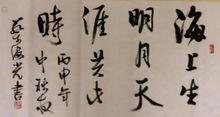 海上生
明月天
涯共此
時
丙申年
中秋夜
光書